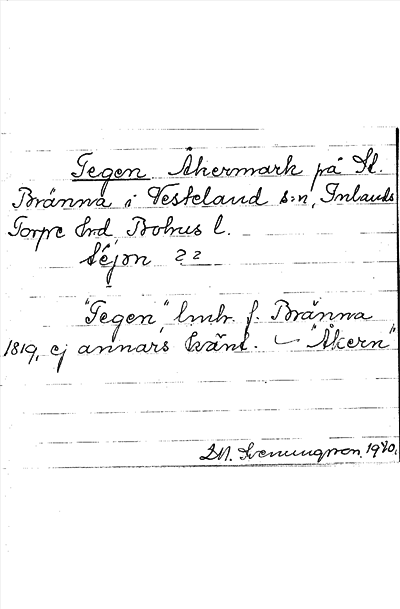 Tegen Åkermark på St.
Bränna i Vesteland s:n, Inlands
Torpe hrd, Bohus l.
? ?
"Tegen", lmtr. f. Bränna
1819, ej annars känt. "Åkern"
Svenungsson, 1920.